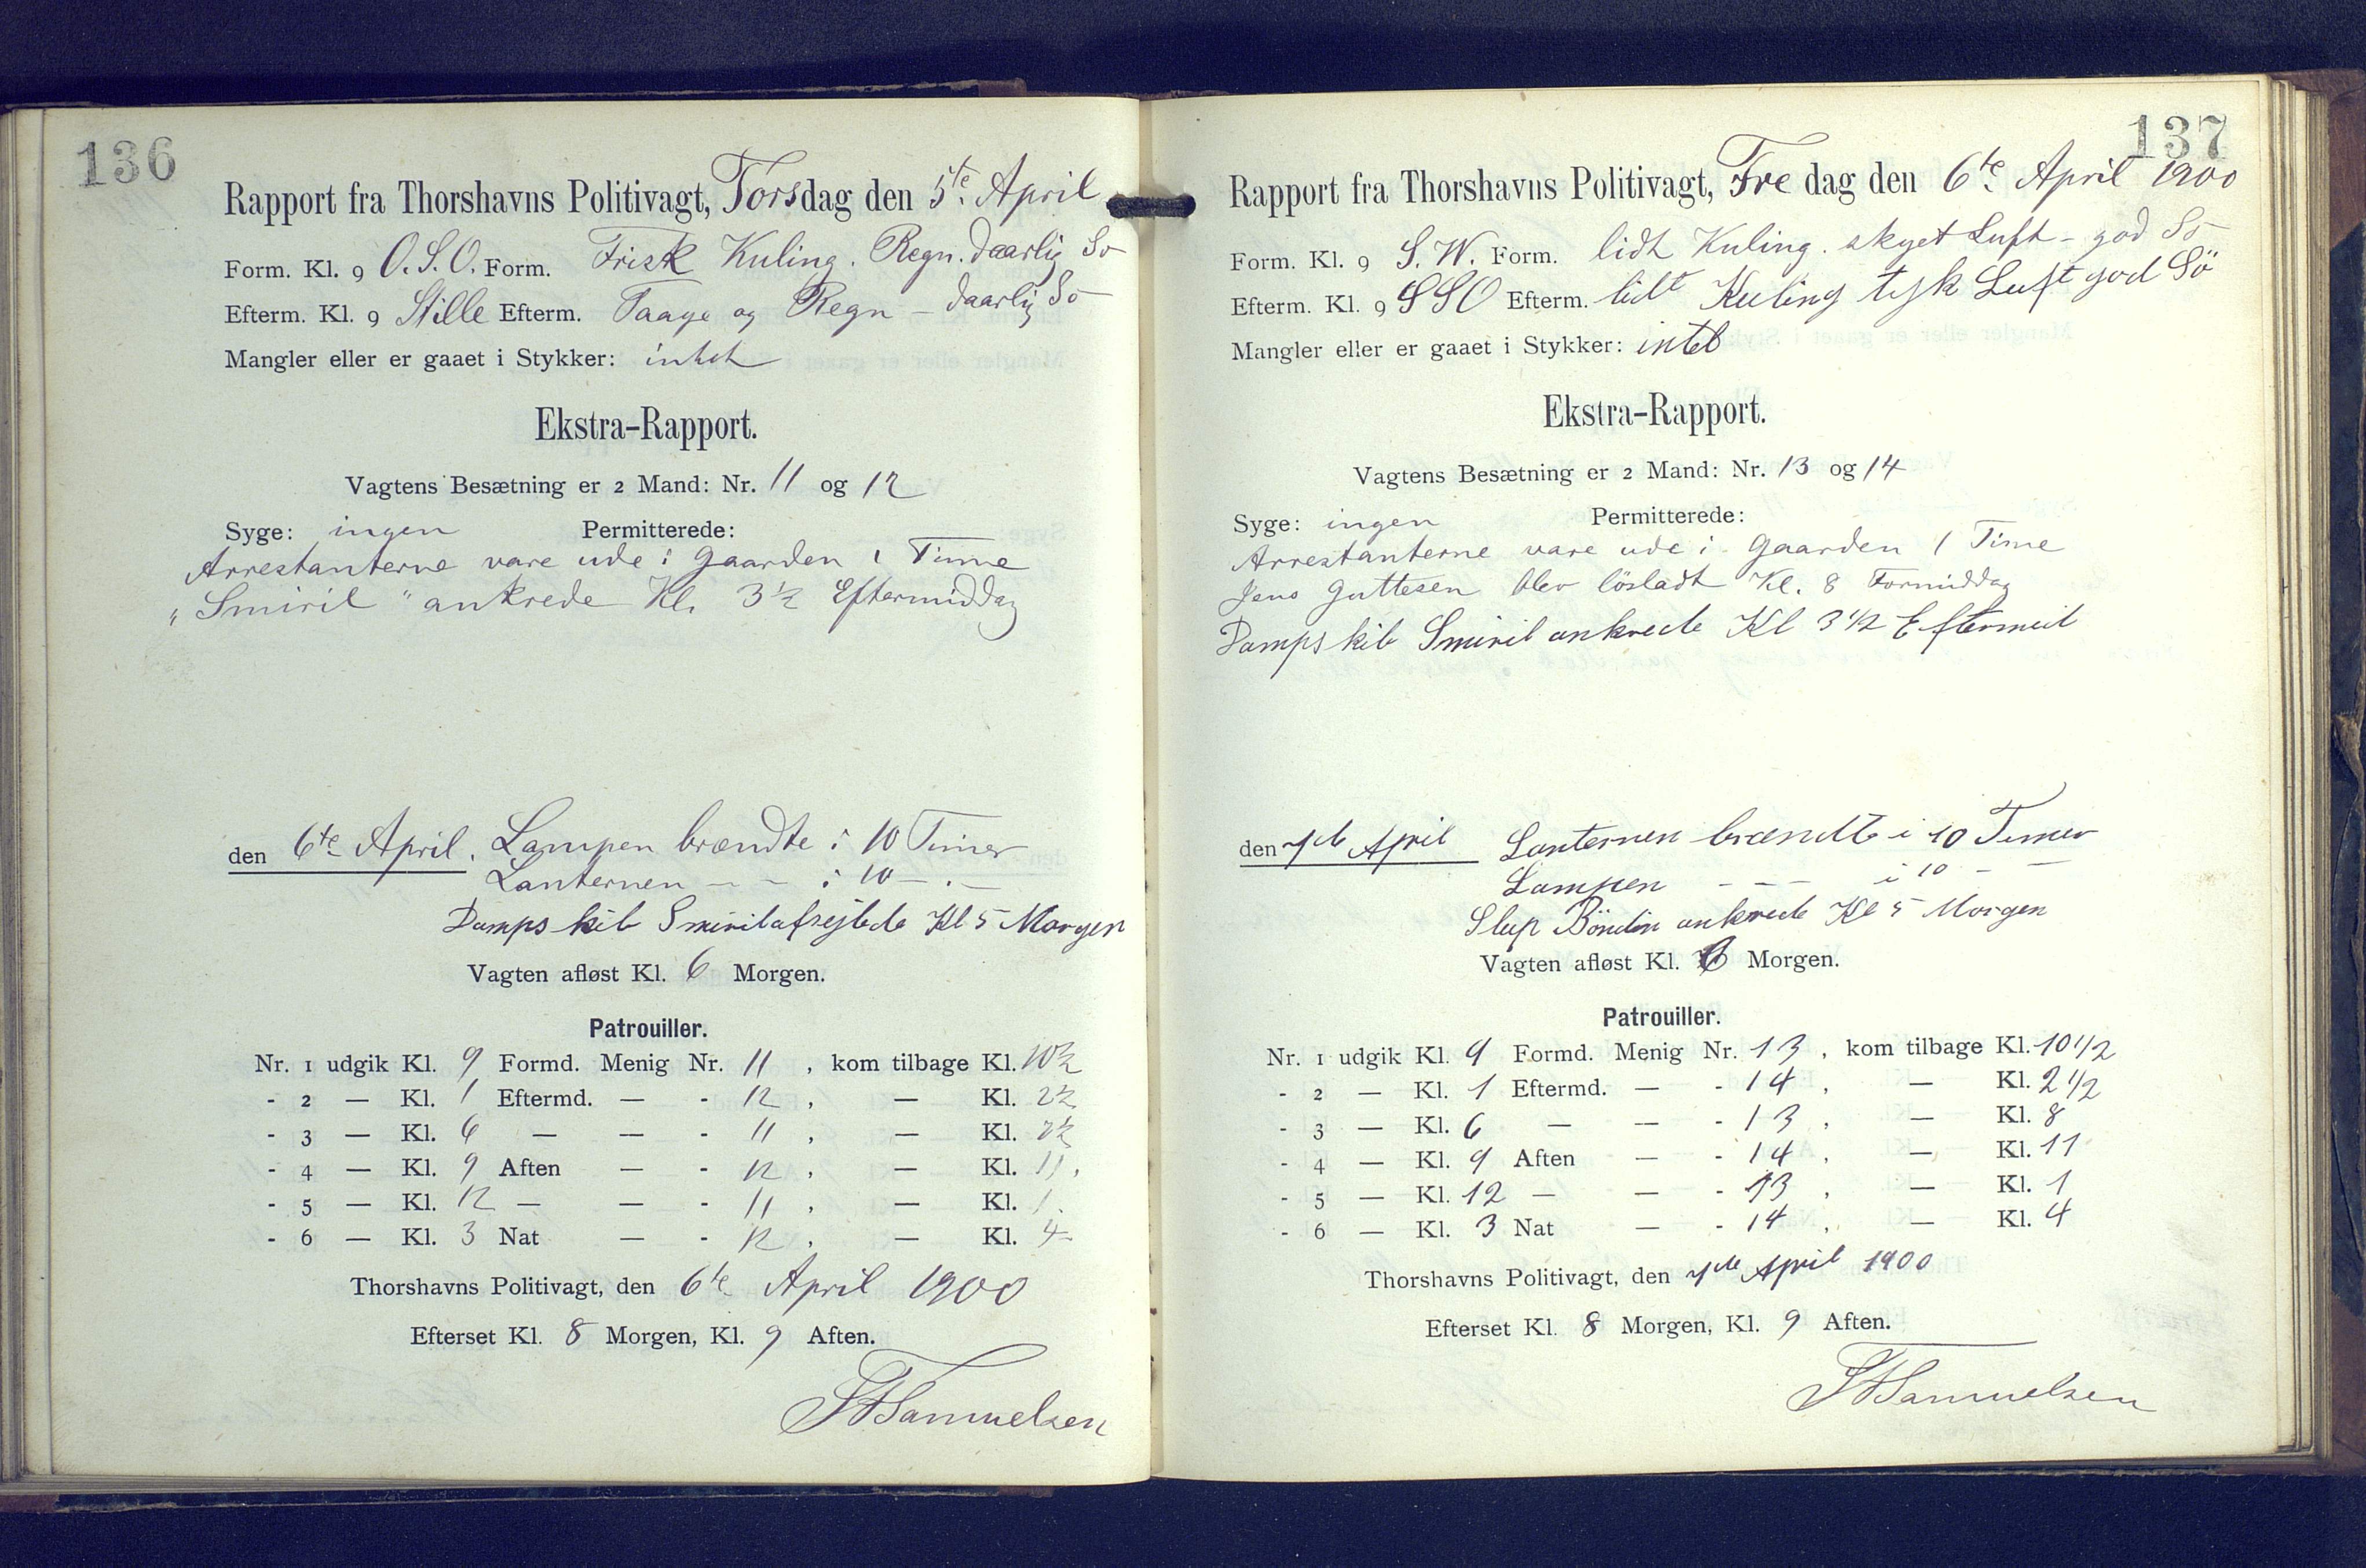 136
Rapport fra Thorshavns Politivagt, Torsdag den 5te April
Form. Kl. 9 O.S.O. Form. Frisk Kuling. Regn. daarlig Sö
Efterm. Kl. 9 Stille Efterm. Taage og Regn - daarlig Sö
Mangler eller er gaaet i Stykker: intet
Ekstra-Rapport.
Vagtens Besætning er 2 Mand: Nr. 11 og 12
Syge: ingen Permitterede:
Arrestanterne vare ude i Gaarden 1 Time
"Smiril" ankrede Kl. 3½ Eftermiddag
den 6te April. Lampen brændte i 10 Timer
Lanternen - - i 10 - . -
Dampskib Smiril afrejlede Kl 5 Morgen
Vagten afløst Kl. 6 Morgen.
Patrouiller.
Nr. 1 udgik Kl. 9 Formd. Menig Nr. 11, kom tilbage Kl. 10½
- 2 — Kl. 1 Eftermd. — - 12, — Kl. 2½
- 3 — Kl. 6 — — - 11, — Kl.
- 4 — Kl. 9 Aften — - 12, — Kl. 11.
- 5 — Kl. 12 — — - 11, — Kl. 1.
- 6 — Kl. 3 Nat — - 12, — Kl. 4
Thorshavns Politivagt, den 6te April 1900
Efterset Kl. 8 Morgen, Kl. 9 Aften.
Samuelsen
137
Rapport fra Thorshavns Politivagt, Fredag den 6te April 1900
Form. Kl. 9 S.W. Form. lidt Kuling. skyet Luft - god Sö
Efterm. Kl. 9 SSO Efterm. lidt Kuling tysk Luft god Sö
Mangler eller er gaaet i Stykker: intet
Ekstra-Rapport.
Vagtens Besætning er 2 Mand: Nr. 13 og 14
Syge: ingen Permitterede:
Arrestanterne vare ude i Gaarden 1 Time
Jens Guttesen blev lösladt Kl. 8 Formiddag
Dampskib Smiril ankrede Kl 3 1/2 Eftermid
den 7de April Lanternen brændte i 10 Timer
Lampen - - - i 10 - -
Slup Böndin ankrede Kl 5 Morgen
Vagten afløst Kl. 6 Morgen.
Patrouiller.
Nr. 1 udgik Kl. 9 Formd. Menig Nr. 13, kom tilbage Kl. 10 1/2
- 2 — Kl. 1 Eftermd. — - 14, — Kl. 2 1/2
- 3 — Kl. 6 — — - 13, — Kl. 8
- 4 — Kl. 9 Aften — - 14, — Kl. 11
- 5 — Kl. 12 — — - 13, — Kl. 1
- 6 — Kl. 3 Nat — - 14, — Kl. 4
Thorshavns Politivagt, den 7de April 1900
Efterset Kl. 8 Morgen, Kl. 9 Aften.
Samuelsen